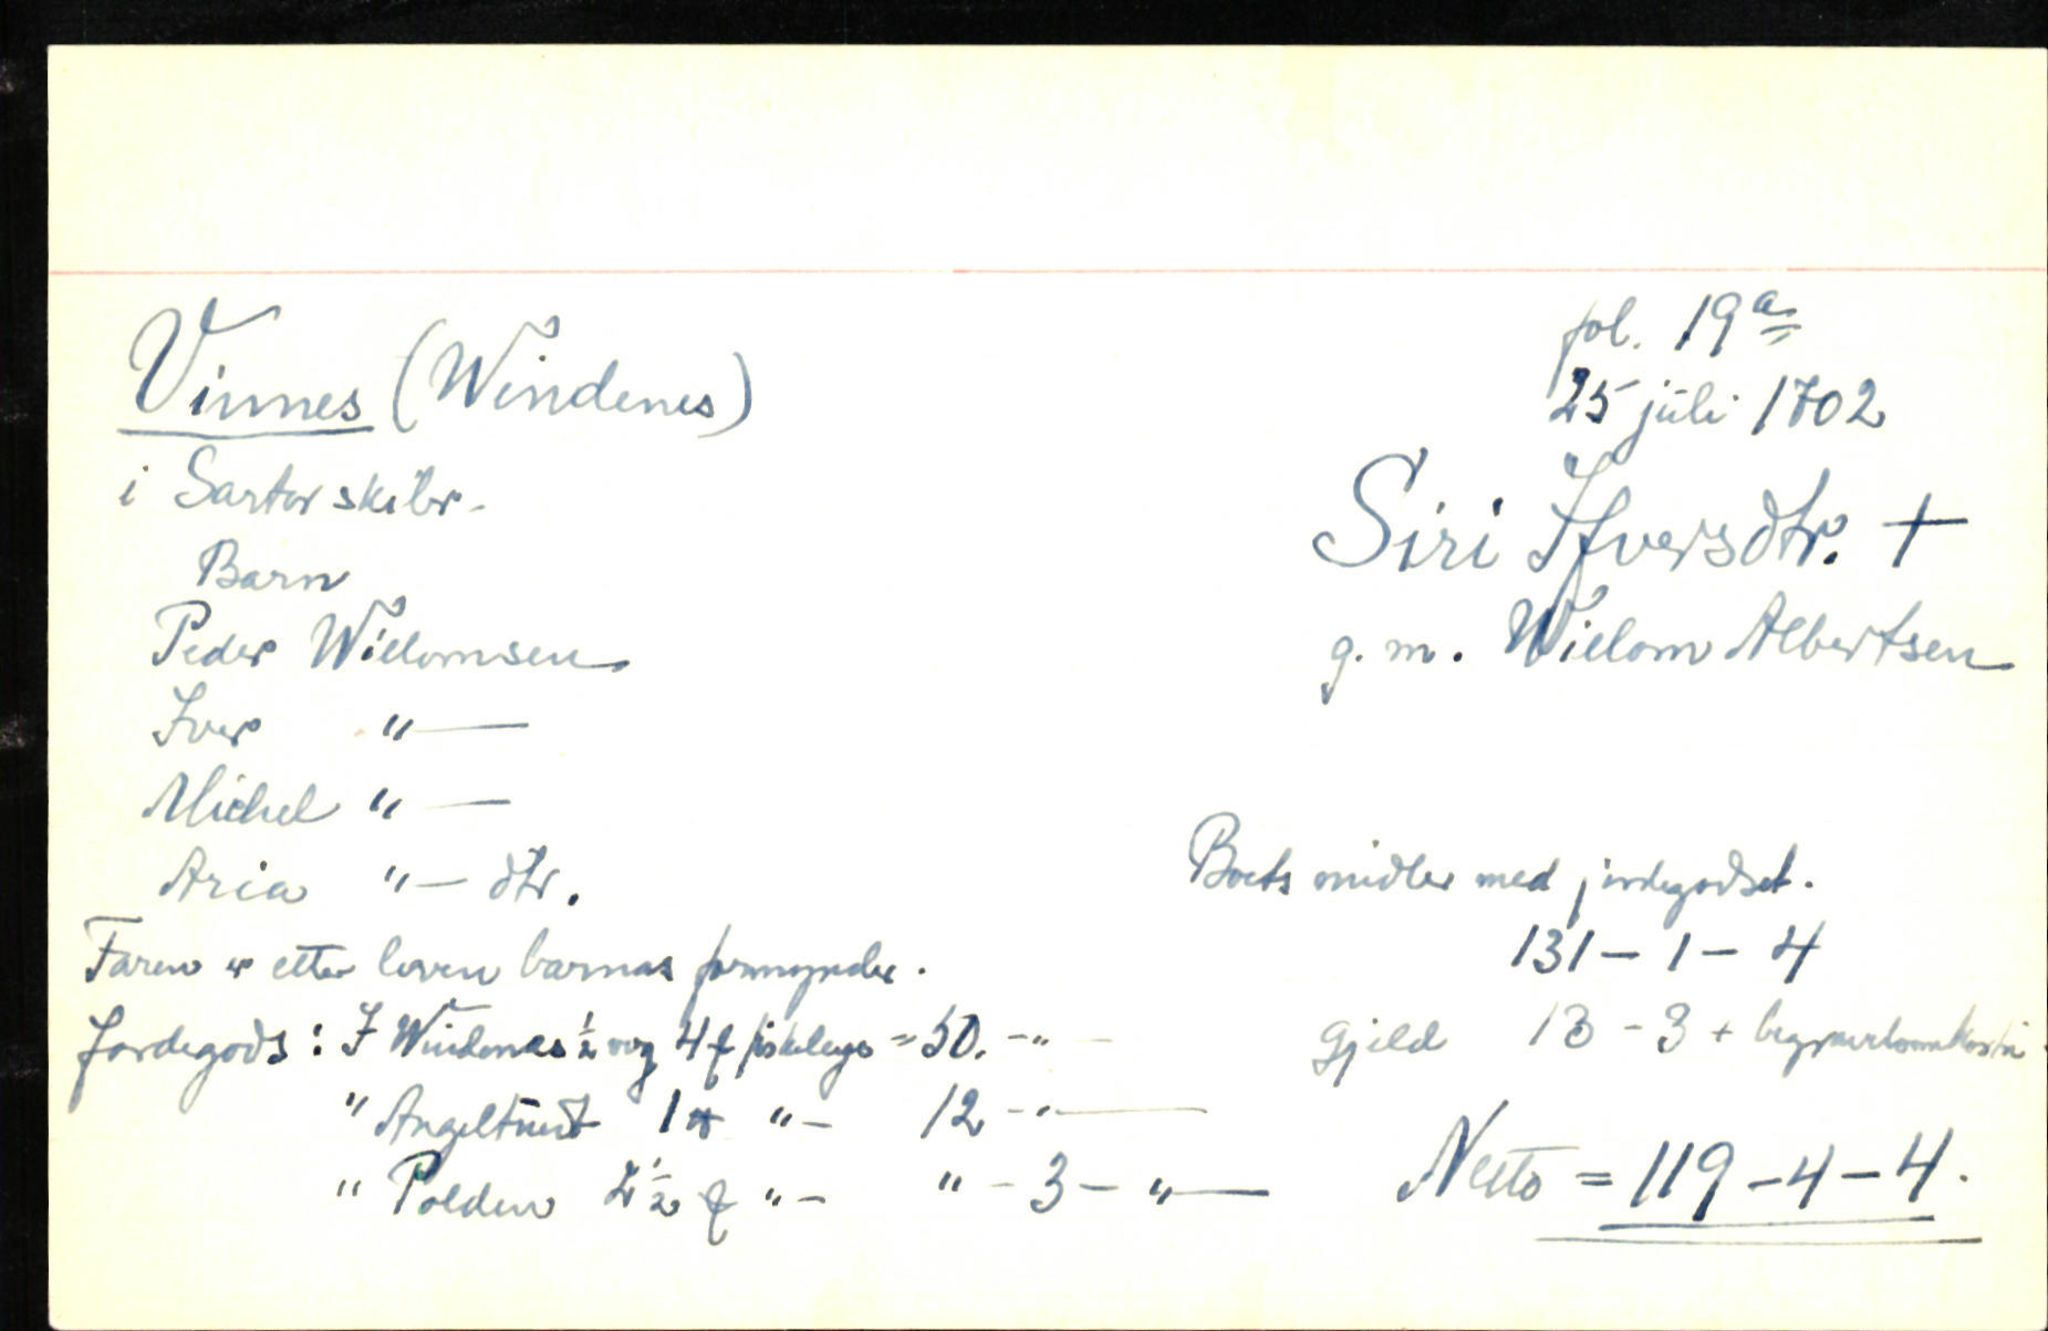 Vinnes (Windenes)
i Sartor skibr.
Barn
Peder Wielomsen
Iver "—
Michel "—
Aria "— dtr.
Faren er etter loven barnas formynder.
Jordegods: I Windenes ½ vog 4 f fiskeleye = 50. - " -
" Angeltveit 1 " - 12 - " —
" Polden 2½ f " - " - 3 - " —
fol. 19a
25 juli 1702
Siri Ifversdtr. +
g. m. Wielom Albertsen
Boets midler med jordegodset.
131 - 1 - 4
Gjeld 13 - 3 +
Netto = 119 - 4 - 4.